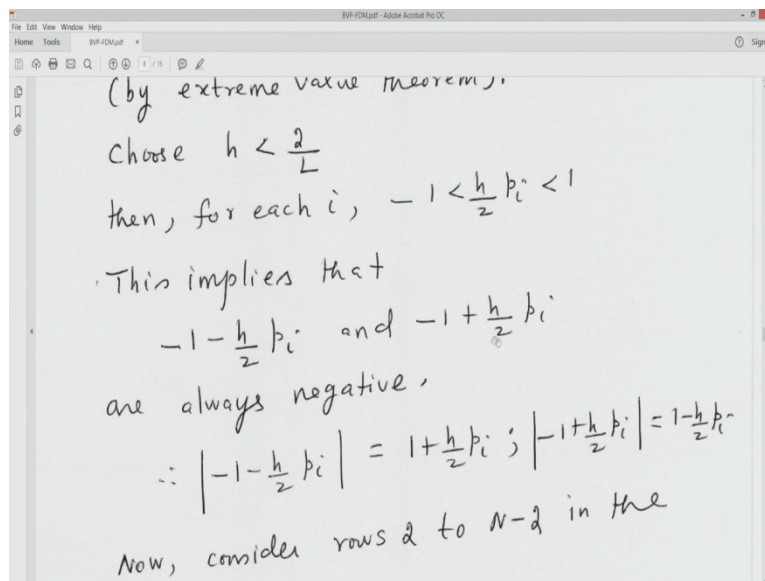 BVP-FDM.pdf - Adobe Acrobat Pro DC
File Edit View Window Help
Home Tools BVP-FDM.pdf × Sign
/ 15
(by extreme value theorem).
Choose h < 2/L
then, for each i, -1 < h/2 p_i < 1
This implies that
-1 - h/2 p_i and -1 + h/2 p_i
are always negative.
∴ |-1 - h/2 p_i| = 1 + h/2 p_i ; |-1 + h/2 p_i| = 1 - h/2 p_i
Now, consider rows 2 to N-2 in the